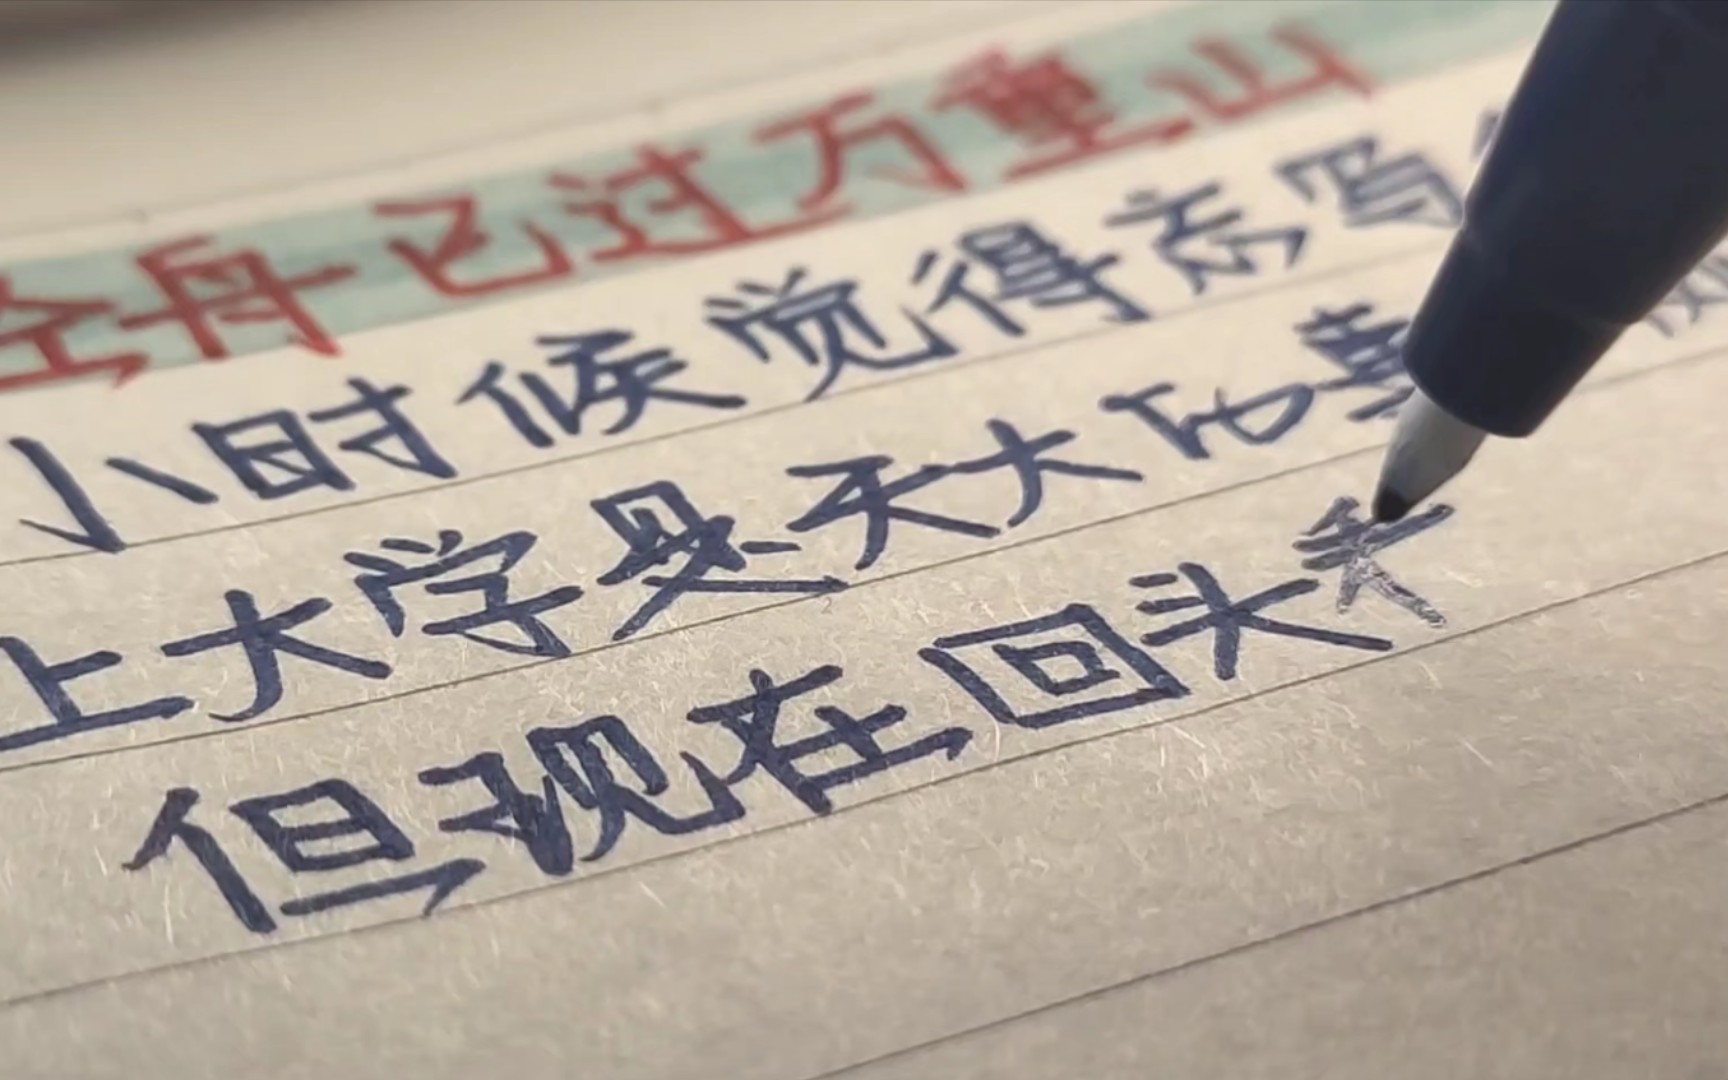 轻舟已过万重山
小时候觉得忘写
上大学是天大的事
但现在回头